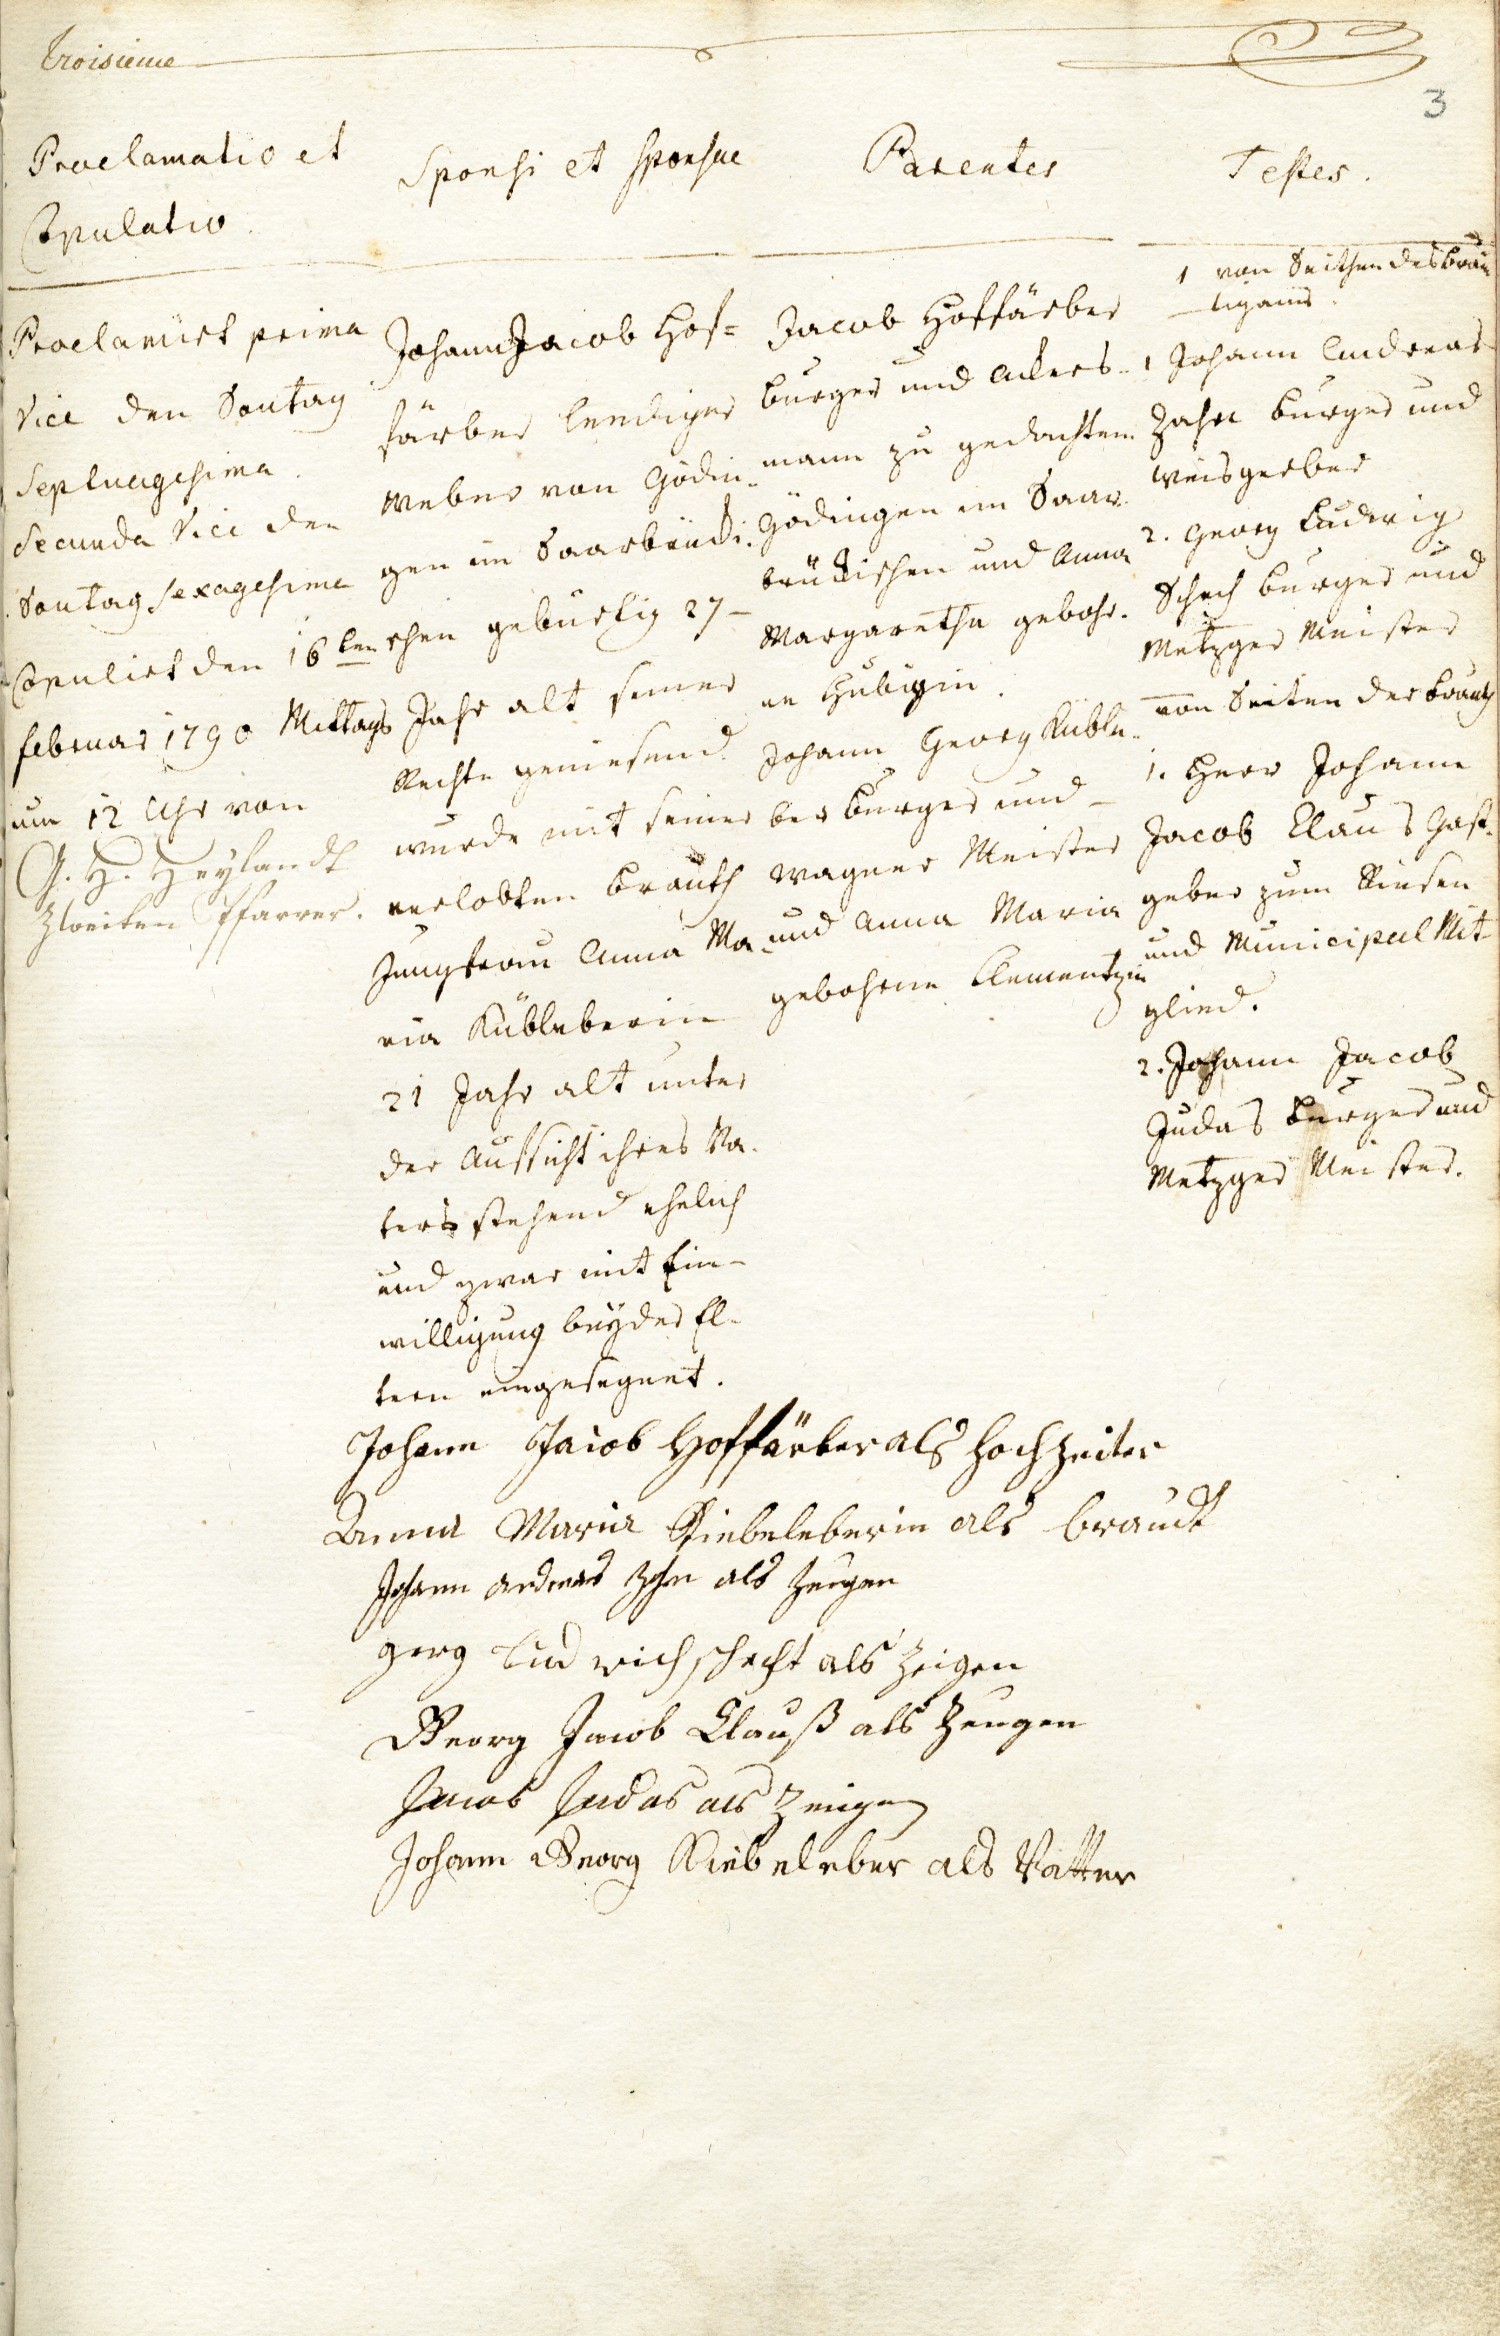 troisieme
3
Proclamatio et
Copulatio.
Sponsi et sponsae
Parentes
Testes.
Proclamirt prima
Vice den Sontag
Septuagesima.
Secunda Vice den
Sontag Sexagesima
Copulirt den 16ten
februar 1790 Mittags
um 12 Uhr von
G. H. Heylandt
zweiten Pfarrer.
Johann Jacob Hof=
färber lediger
Weber von Gödin-
gen im Saarbrücki-
schen gebürtig 27-
Jahr alt seiner
Rechte geniesend
wurde mit seiner
verlobten Brauth
Jungfrau Anna Ma-
ria Kübleberin
21 Jahr alt unter
der Aufsicht ihres Va-
ters stehend ehelich
und zwar mit Ein-
willigung beyder El-
tern eingesegnet.
Jacob Hoffärber
burger und Ackers-
mann zu gedachtem
Gödingen im Saar-
brükischen und Anna
Margaretha gebohr-
ne Hubigin.
Johann Georg Küble-
ber burger und
Wagner Meister
und Anna Maria
gebohrne Clementzin
1 von Seithen des Bräu
tigams.
1 Johann Andreas
Zahn burger und
Weisgerber
2. Georg Ludwig
Schech burger und
Metzger Meister
von Seiten der brauth
1. Herr Johann
Jacob Claus Gast-
geber zum Riesen
und Municipal Mit-
glied.
2. Johann Jacob
Judas burger und
Metzger Meister.
Johann Jacob Hoffärber als Hochzeiter
Anna Maria Kiebeleberin als braudt
Johann andreas Zahn als Zeugen
gerg Lud wich schecht als Zeigen
Georg Jacob Clauß als Zeugen
Jacob Judas als Zeuge
Johann Georg Kiebeleber als Vatter